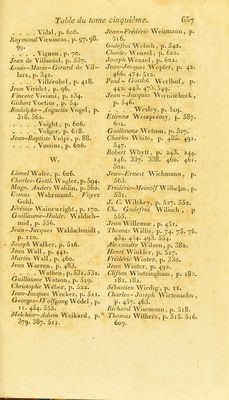 Table du tome cinquième. 657
. . . . Vidal, p. 606.
Raymond Vieussens, p. 97. 98.
99.
. . . . Vignon, p. 70.
Jean de Villaréal, p. 537.
Louis-Marie-Girard de Vil-
lars, p. 342.
. . . . Villebrohel, p. 418.
Jean Viridet, p. 96.
Vincent Viviani, p. 184.
Gisbert Voetius, p. 54.
Rodolphe-Augustin Vogel, p.
318. 562.
. . . . Voight, p. 606.
. . . . Volger, p. 618.
Jean-Baptiste Volpi, p. 88.
. . . . Vossius, p. 606.
W.
Lionel Wafer, p. 606.
Charles-Gottl. Wagler, p. 594.
Magn. Anders Wahlin, p. 560.
Ennius Wahrmund. Voyez
Gohl.
Jérémie Wainewright, p. 170.
Guillaume-Huldr. Waldsch-
mid, p. 556.
Jean-Jacques Waldschmidt,
p. 110.
Joseph Walker, p. 516.
Jean Wall, p. 441.
Martin Wall, p. 460.
Jean Warren, p. 483.
. . . . Wathen, p. 531. 532.
Guillaume Watson, p. 529.
Christophe Wéber, p. 522.
Jean-Jacques Wecker, p. 521.
Georges-Wolffgang Wedel, p.
11. 454. 555.
Melchior-Adam Weikard, p.
379. 387. 511.
Jean-Frédéric Weismann, p.
516.
Godefroi Welsch, p. 542.
Charles Wenzel, p. 602.
Joseph Wenzel, p. 602.
Jean-Jacques Wepfer, p. 42.
466. 474. 512.
Paul-Gottlob Werlhof, p.
442. 443. 457. 549.
Jean-Jacques Wernischeck,
p. 546.
. . . . Wesley, p. 529.
Etienne Weszprémy, p. 587.
602.
Guillaume Wetson, p. 527.
Charles White, p. 485. 491.
547.
Robert Whytt, p. 243. 244.
246. 337. 338. 460. 461.
502.
Jean-Ernest Wichmann, p.
563.
Frédéric-Meinolf Wilhelm, p.
531.
J. C. Wilckey, p. 527. 552.
Ch. Godefroi Wilisch, p.
553.
Jean Willemse, p. 451.
Thomas Willis, p. 74. 75. 76.
454. 474. 493. 554.
Alexandre Wilson, p. 380.
Henri Winkler, p. 527.
Frédéric Winter, p. 330.
Jean Winter, p. 492.
Clifton Wintringham, p. 180.
181. 182.
Sébastien Wirdig, p. 11.
Charles-Joseph Wirtensohn,
p. 457. 463.
Richard Wisemann, p. 518.
Thomas Withers, p. 515. 516.
609.